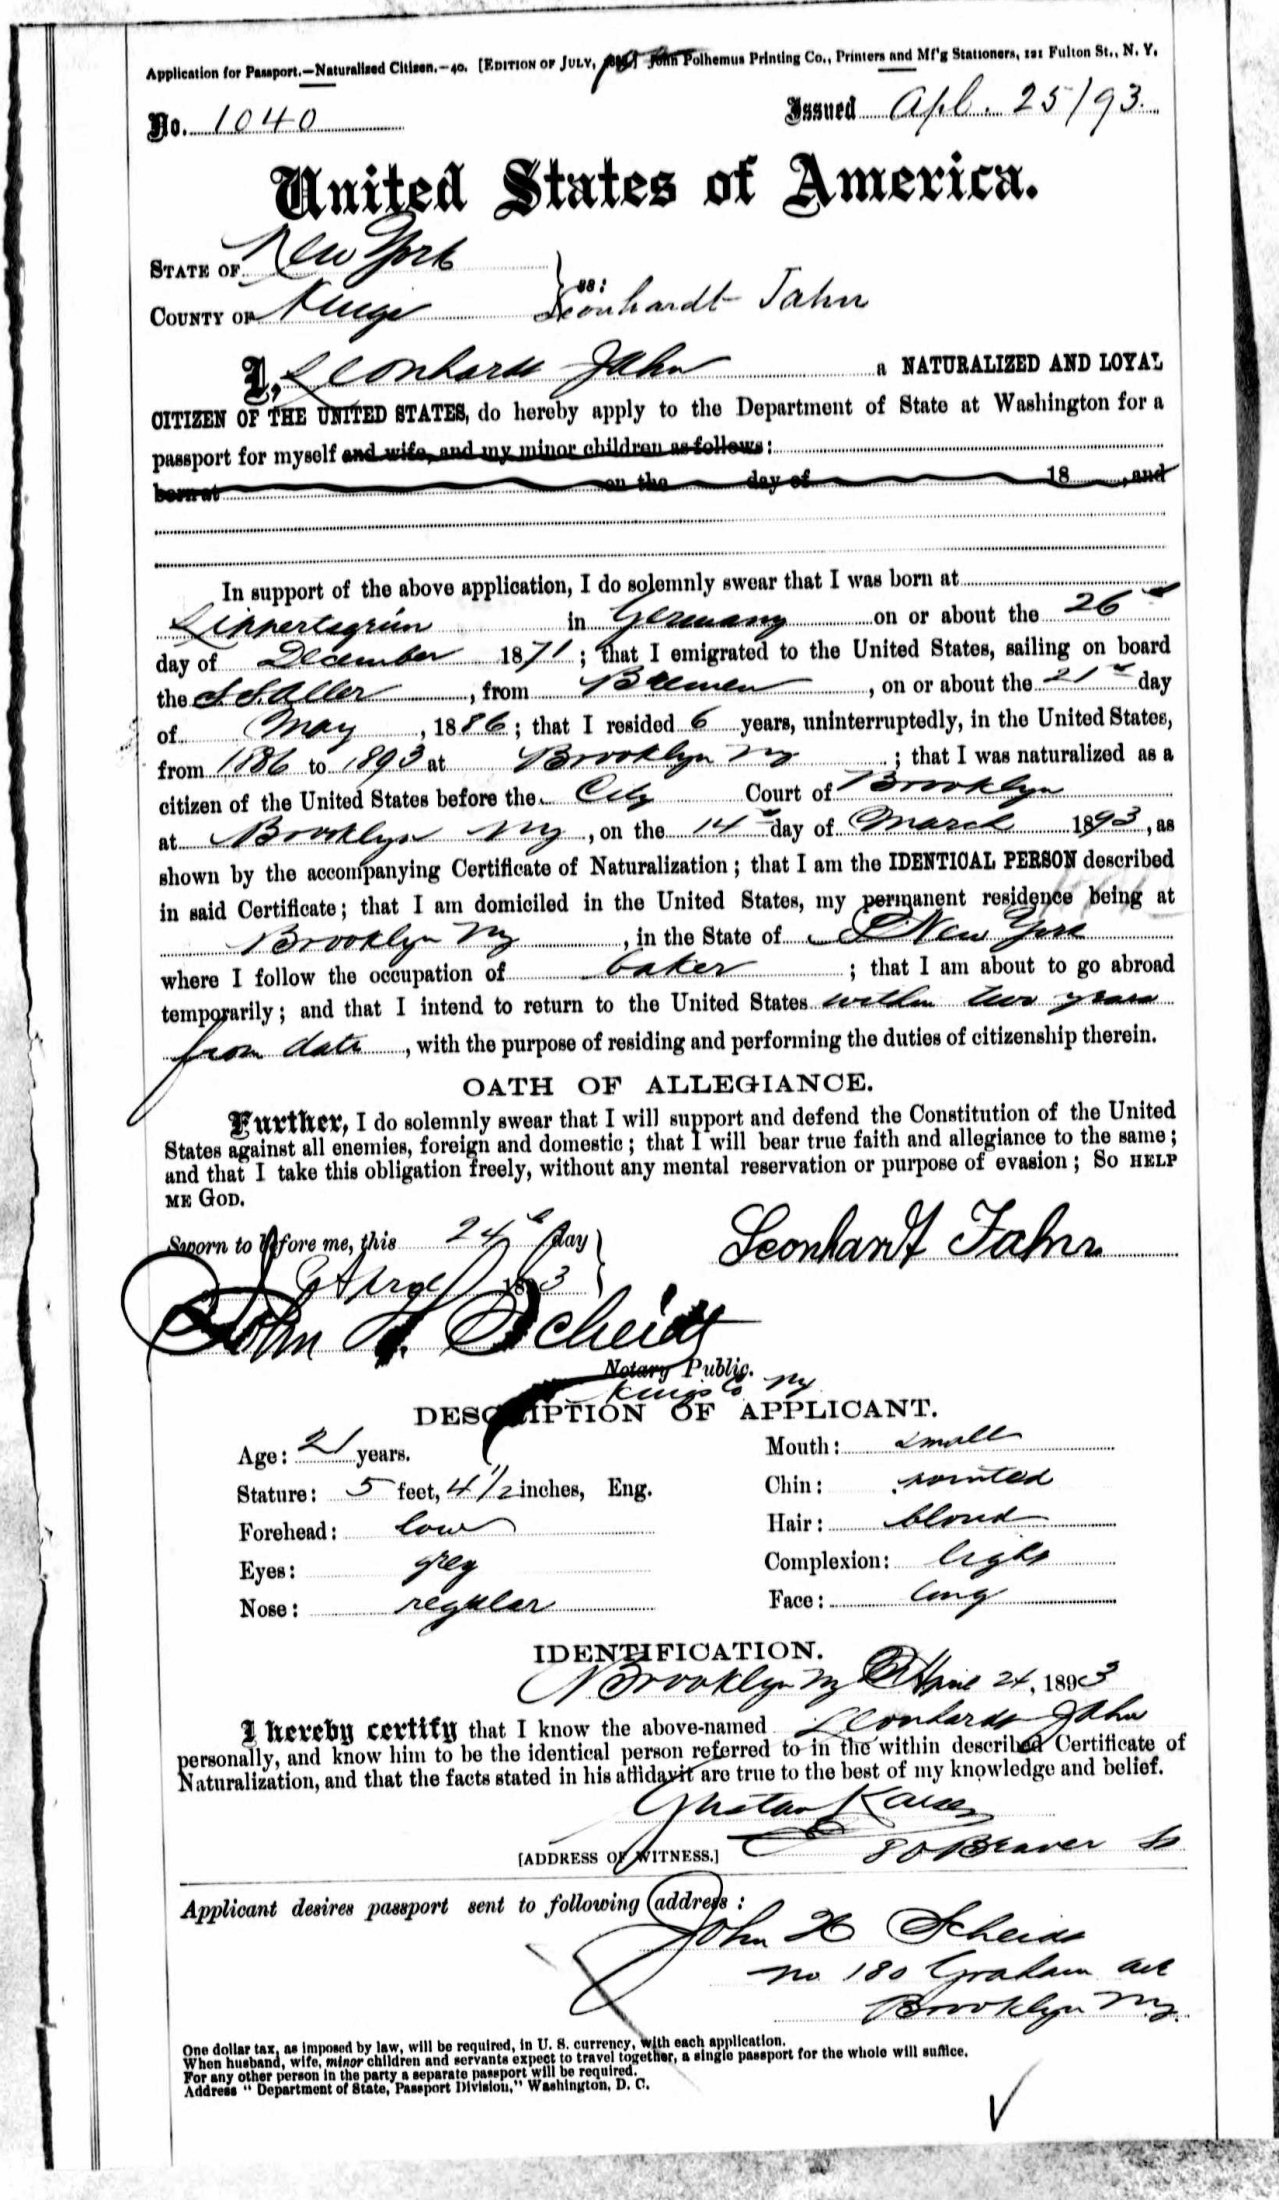 Application for Passport.—Naturalized Citizen.—40. [EDITION OF JULY, John Polhemus Printing Co., Printers and M'f'g Stationers, 121 Fulton St., N. Y.
No. 1040 Issued Apl. 25/93.
United States of America.
STATE OF New York
COUNTY OF Kings ss: Leonhardt Jahn
I, Leonhardt Jahn a NATURALIZED AND LOYAL
CITIZEN OF THE UNITED STATES, do hereby apply to the Department of State at Washington for a
passport for myself and wife, and my minor children as follows:
born at on the day of 18 , and
In support of the above application, I do solemnly swear that I was born at
Lippertsgrün in Germany on or about the 26th
day of December 1871; that I emigrated to the United States, sailing on board
the S.S. Aller, from Bremen, on or about the 21st day
of May, 1886; that I resided 6 years, uninterruptedly, in the United States,
from 1886 to 1893 at Brooklyn NY; that I was naturalized as a
citizen of the United States before the City Court of Brooklyn
at Brooklyn NY, on the 14th day of March 1893, as
shown by the accompanying Certificate of Naturalization; that I am the IDENTICAL PERSON described
in said Certificate; that I am domiciled in the United States, my permanent residence being at
Brooklyn NY, in the State of New York
where I follow the occupation of baker; that I am about to go abroad
temporarily; and that I intend to return to the United States within two years
from date, with the purpose of residing and performing the duties of citizenship therein.
OATH OF ALLEGIANCE.
Further, I do solemnly swear that I will support and defend the Constitution of the United
States against all enemies, foreign and domestic; that I will bear true faith and allegiance to the same;
and that I take this obligation freely, without any mental reservation or purpose of evasion; SO HELP
ME GOD.
Sworn to before me, this 24th day Leonhardt Jahn
of April 1893
John H. Scheidt
Notary Public.
Kings Co NY
DESCRIPTION OF APPLICANT.
Age: 21 years. Mouth: small
Stature: 5 feet, 4 1/2 inches, Eng. Chin: pointed
Forehead: low Hair: blond
Eyes: grey Complexion: light
Nose: regular Face: long
IDENTIFICATION.
Brooklyn NY April 24, 1893
I hereby certify that I know the above-named Leonhardt Jahn
personally, and know him to be the identical person referred to in the within described Certificate of
Naturalization, and that the facts stated in his affidavit are true to the best of my knowledge and belief.
Gustav Kaiser
[ADDRESS OF WITNESS.] 80 Beaver St
Applicant desires passport sent to following address:
John H Scheidt
No 180 Graham ave
Brooklyn NY.
One dollar tax, as imposed by law, will be required, in U. S. currency, with each application.
When husband, wife, minor children and servants expect to travel together, a single passport for the whole will suffice.
For any other person in the party a separate passport will be required.
Address "Department of State, Passport Division," Washington, D. C.